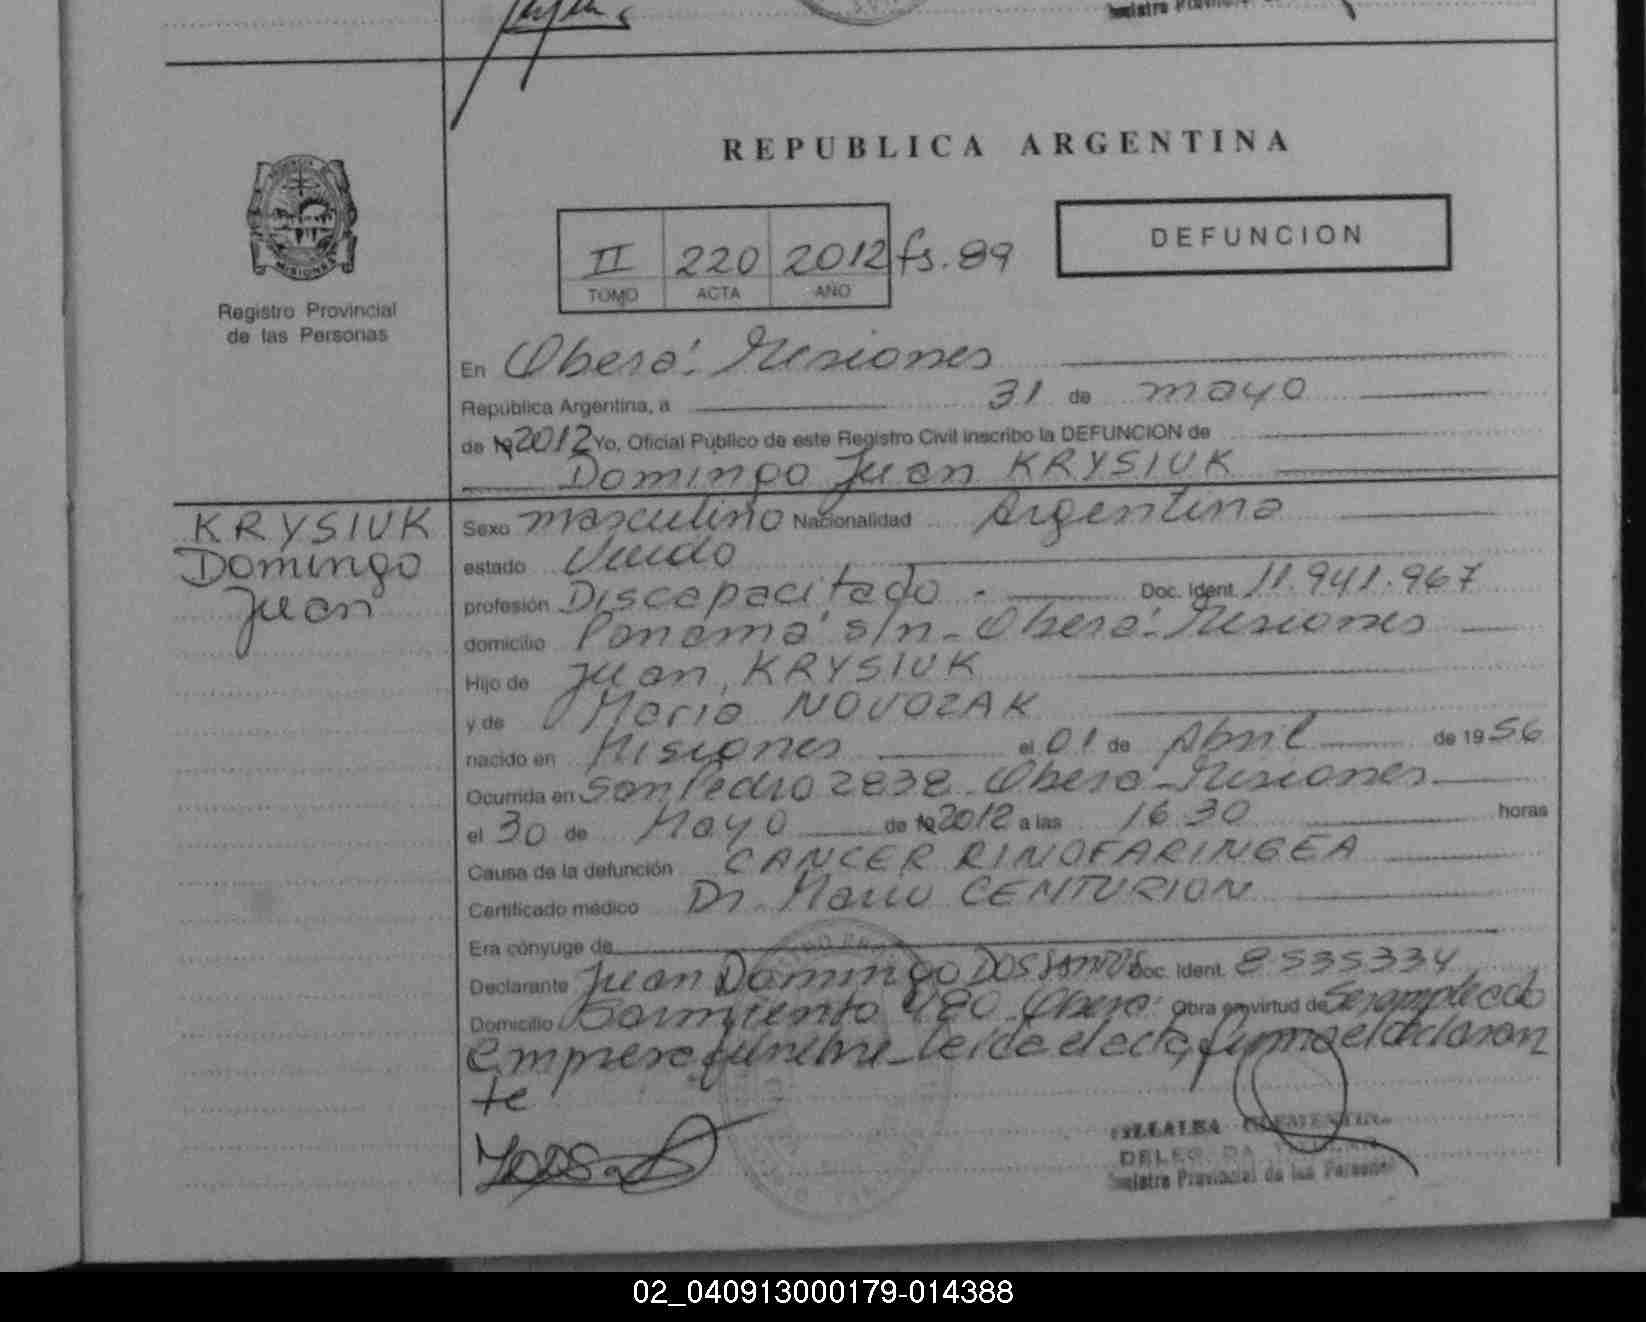 REPUBLICA ARGENTINA
MISIONES
Registro Provincial
de las Personas
II 220 2012 fs. 89
TOMO ACTA AÑO
DEFUNCION
En Oberá. Misiones
República Argentina, a 31 de mayo
de 19 2012 Yo, Oficial Público de este Registro Civil inscribo la DEFUNCION de
Domingo Juan KRYSIUK
KRYSIUK
Domingo
Juan
Sexo masculino Nacionalidad Argentina
estado Viudo
profesión Discapacitado.- Doc. Ident. 11.941.967
domicilio Panamá s/n - Oberá - Misiones
Hijo de Juan KRYSIUK
y de Maria NOVOZAK
nacido en Misiones el 01 de Abril de 1956
Ocurrida en San Pedro 2838 - Oberá - Misiones
el 30 de Mayo de 19 2012 a las 16 30 horas
Causa de la defunción CANCER RINOFARINGEA
Certificado médico Dr. Mario CENTURION
Era cónyuge de
Declarante Juan Domingo DOS SANTOS Doc. Ident. 8535334
Domicilio Sarmiento 480 - Oberá. Obra en virtud de Ser empleado
empresa fúnebre - Leida el acta, firma el declaran
te
Registro Provincial de las Personas
02_040913000179-014388